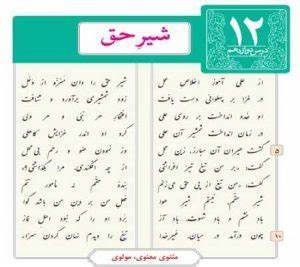 ۱۲
درس دوازدهم
شیر حق
از علی آموز اخلاص عمل شیر حق را دان منزّه از دغل
در غزا بر پهلوانی دست یافت زود شمشیری برآورد و شتافت
او خدو انداخت بر روی علی افتخار هر نبی و هر ولی
در زمان انداخت شمشیر آن علی کرد او اندر غزایش کاهلی
۵ گشت حیران آن مبارز زین عمل وز نمودن عفو و رحم بی محل
گفت: بر من تیغ تیز افراشتی از چه افکندی، مرا بگذاشتی؟
گفت: من تیغ از پی حق می‌زنم بندهٔ حقم نه مأمور تنم
فعل من بر دین من باشد گوا
باد خشم و باد شهوت، باد آز برد او را که نبود اهل نماز
۱۰ چون درآمد در میان، غیر خدا تیغ را دیدم نهان کردن سزا
مثنوی معنوی، مولوی